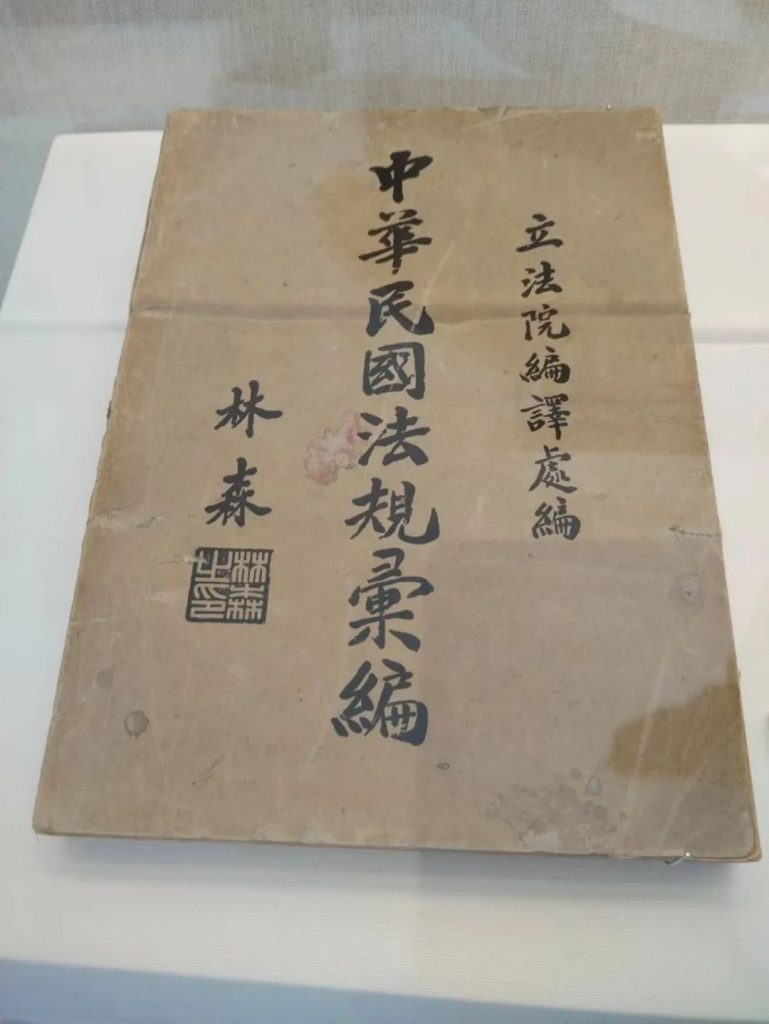 立法院編譯處編
中華民國法規彙編
林森
林森之印